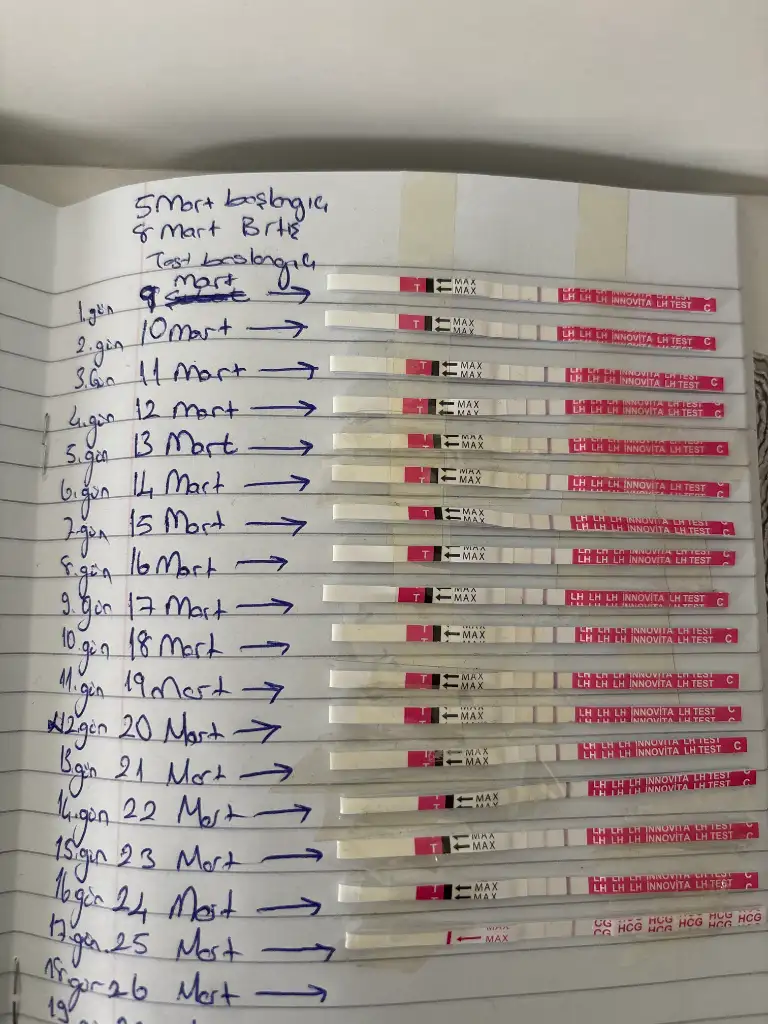 5 Mart başlangıç
8 Mart Bitiş
Test başlangıç
Mart
1.gün 9 → T MAX MAX LH LH LH INNOVITA LH TEST C
2.gün 10 Mart → T MAX MAX LH LH LH INNOVITA LH TEST C
3.Gün 11 Mart → T MAX MAX LH LH LH INNOVITA LH TEST C
4.gün 12 Mart → T MAX MAX LH LH LH INNOVITA LH TEST C
5.gün 13 Mart → T MAX MAX LH LH LH INNOVITA LH TEST C
6.gün 14 Mart → T MAX MAX LH LH LH INNOVITA LH TEST C
7.gün 15 Mart → T MAX MAX LH LH LH INNOVITA LH TEST C
8.gün 16 Mart → T MAX MAX LH LH LH INNOVITA LH TEST C
9.gün 17 Mart → T MAX MAX LH LH LH INNOVITA LH TEST C
10.gün 18 Mart → T MAX MAX LH LH LH INNOVITA LH TEST C
11.gün 19 Mart → T MAX MAX LH LH LH INNOVITA LH TEST C
12.gün 20 Mart → T MAX MAX LH LH LH INNOVITA LH TEST C
13.gün 21 Mart → T MAX MAX LH LH LH INNOVITA LH TEST C
14.gün 22 Mart → T MAX LH LH LH INNOVITA LH TEST C
15.gün 23 Mart → T MAX MAX LH LH LH INNOVITA LH TEST C
16.gün 24 Mart → T MAX MAX LH LH LH INNOVITA LH TEST C
17.gün 25 Mart → MAX MAX CG HCG HCG HCG HCG HCG
18.gün 26 Mart →
19